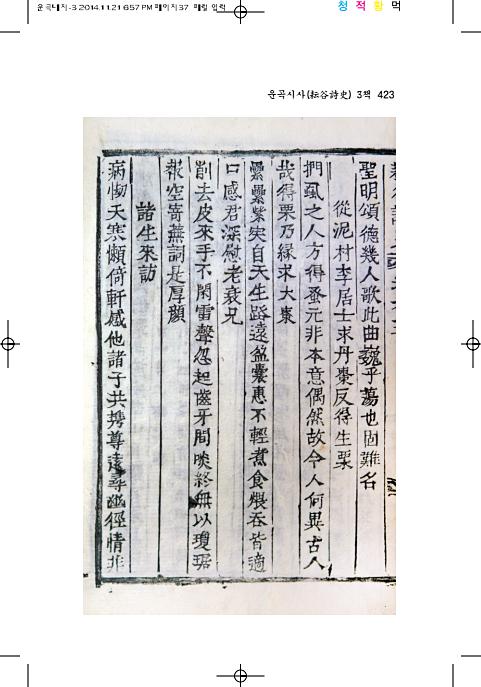 운곡시사-3 2014.11.21 6:57 PM 페이지37 메릴 입력
청 적 황 먹
운곡시사(耘谷詩史) 3책 423
聖明頌德幾人歌此曲巍乎蕩也固難名
從泥村李居士求丹棗反得生栗
捫虱之人方得蚤元非本意偶然故今人何異古人
哉得栗乃緣求大棗
纍纍紫实自天生路遠盆囊惠不輕煮食煨吞皆適
口感君深慰老衰兄
削去皮來手不閑雷聲忽起齒牙間啖終無以瓊琚
報空寄蕪詞是厚顔
諸生來訪
病惱天寒懶倚軒感他諸子共携尊遠尋幽徑情非